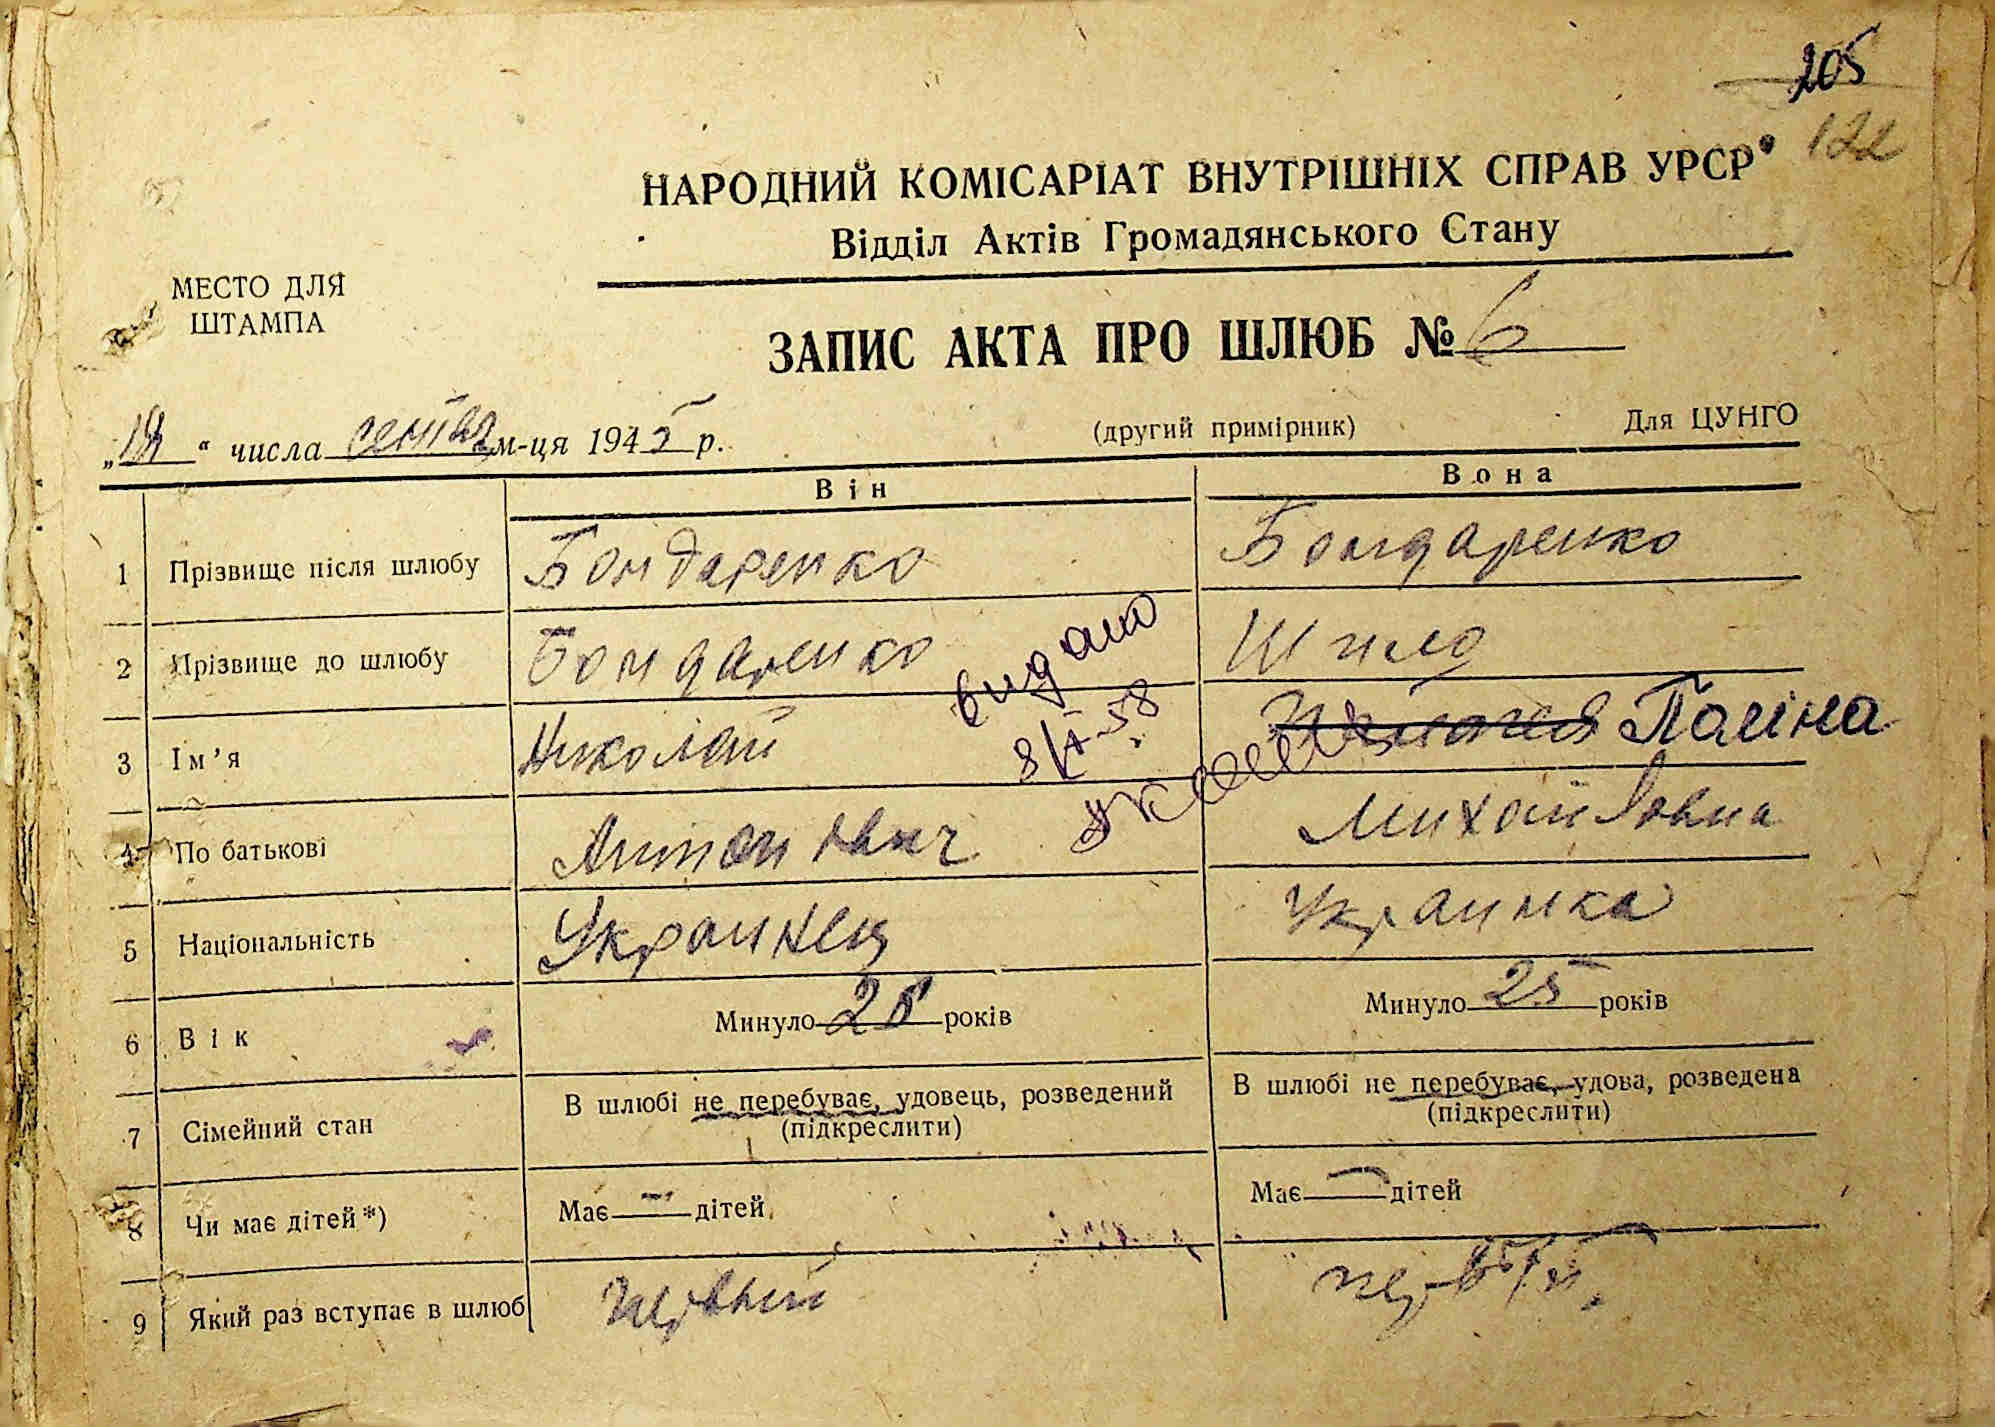 205
122
НАРОДНИЙ КОМІСАРІАТ ВНУТРІШНІХ СПРАВ УРСР
Відділ Актів Громадянського Стану
МЕСТО ДЛЯ
ШТАМПА
ЗАПИС АКТА ПРО ШЛЮБ № 6
" " числа м-ця 1945 р.
(другий примірник)
Для ЦУНГО
Він Вона
1 Прізвище після шлюбу Бондаренко Бондаренко
2 Прізвище до шлюбу Бондаренко Шило
видано
8/ІХ-58
3 Ім'я Николай Поліна
4 По батькові Антонович Михайловна
5 Національність Украинец Украинка
6 Вік Минуло років Минуло 25 років
7 Сімейний стан В шлюбі не перебуває, удовець, розведений В шлюбі не перебуває, удова, розведена
(підкреслити) (підкреслити)
8 Чи має дітей*) Має — дітей Має — дітей
9 Який раз вступає в шлюб первый первый